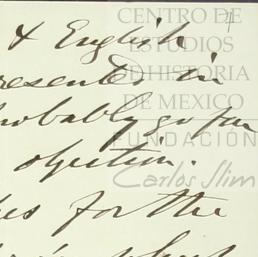 & English
resented in
probably go far
objection.
es for the
CENTRO DE
ESTUDIOS
DE HISTORIA
DE MEXICO
FUNDACIÓN
Carlos Slim